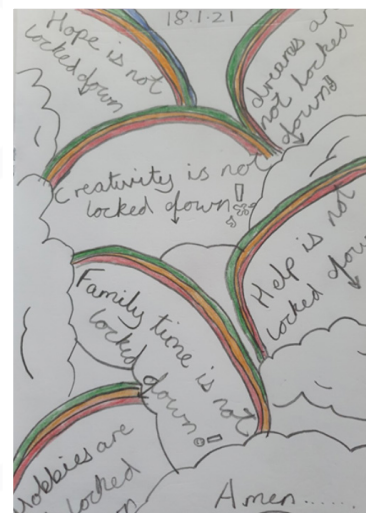 18.1.21
Hope is not
locked down
dreams ar
not locked
down!!
Creativity is not
locked down!
Help is not
locked dow
Family time is not
locked
down!
Hobbies are
locked
n
Amen.....